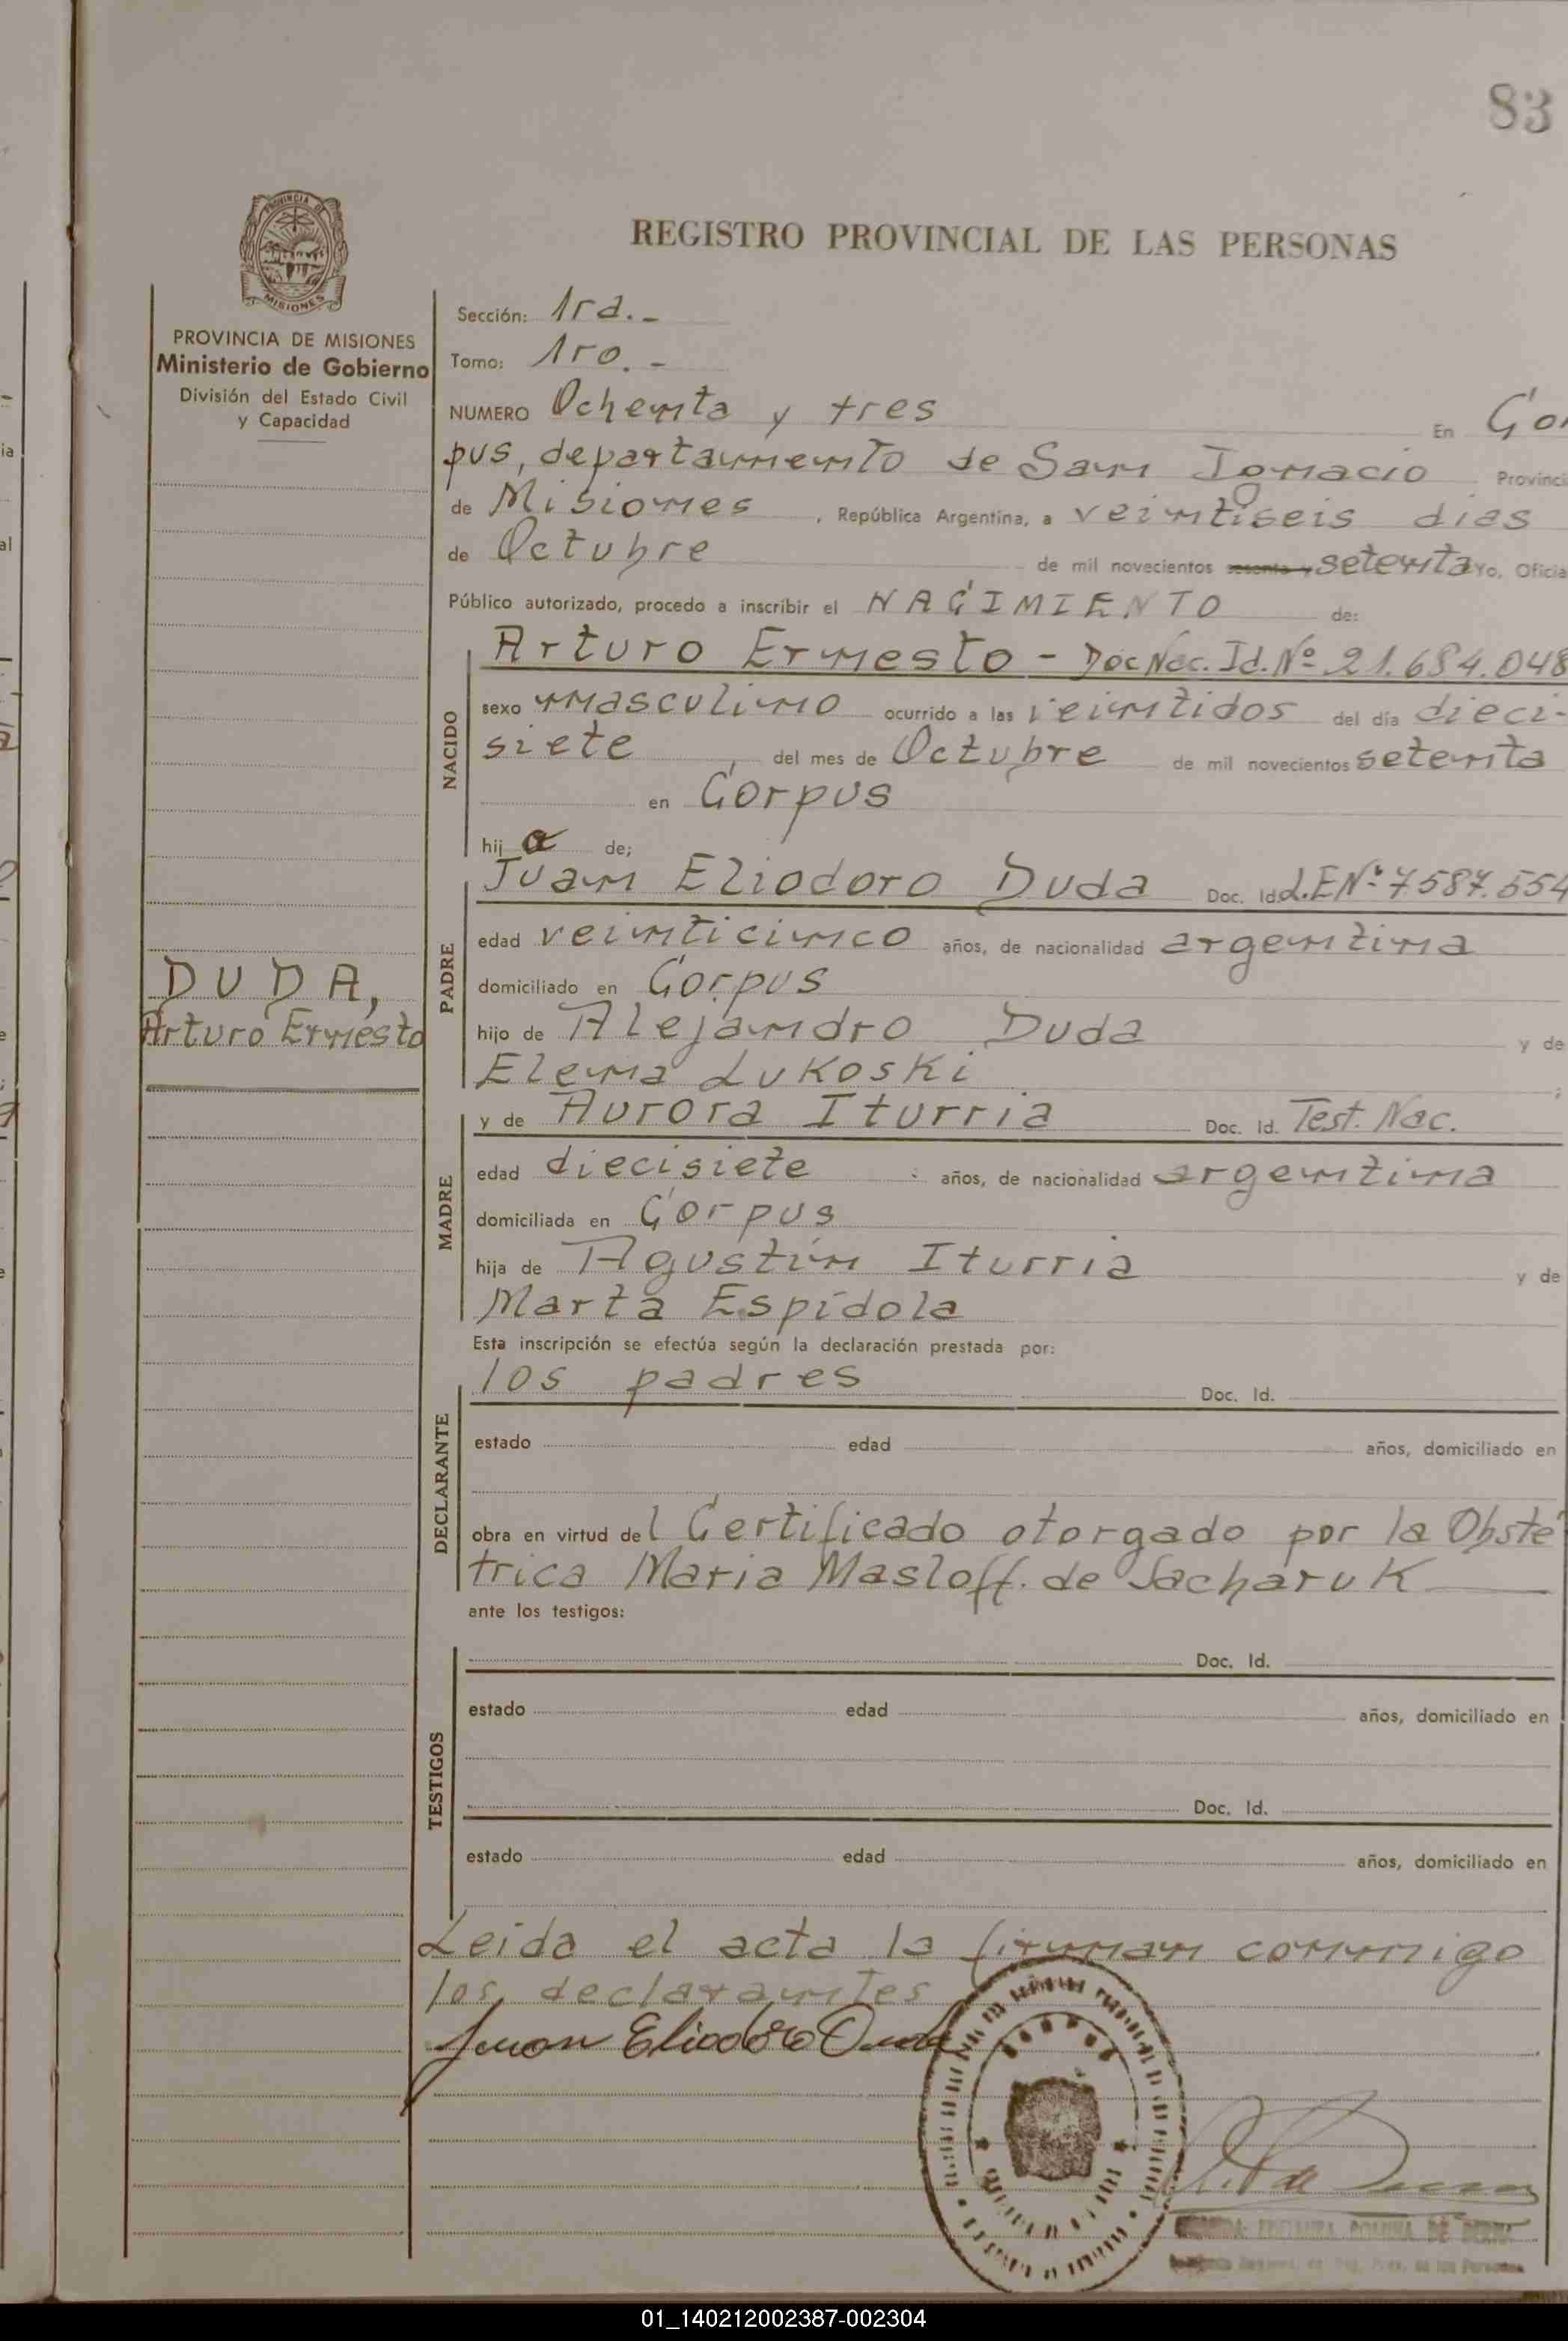 83
PROVINCIA DE
MISIONES
REGISTRO PROVINCIAL DE LAS PERSONAS
PROVINCIA DE MISIONES
Ministerio de Gobierno
División del Estado Civil
y Capacidad
Sección: 1ra.-
Tomo: 1ro.-
NUMERO Ochenta y tres En Cor
pus, departamento de San Ignacio Provinci
de Misiones, República Argentina, a veintiseis dias
de Octubre de mil novecientos sesenta y setenta Yo, Oficia
Público autorizado, procedo a inscribir el NACIMIENTO de:
NACIDO
Arturo Ernesto - Doc Nac. Id. Nº 21.684.048
sexo masculino ocurrido a las veintidos del día dieci-
siete, del mes de Octubre de mil novecientos setenta
en Corpus
hijo de;
PADRE
Juan Eliodoro Duda Doc. Id. L.E Nº 7587.554
edad veinticinco años, de nacionalidad argentina
domiciliado en Corpus
hijo de Alejandro Duda y de
Elena Lukoski ;
DUDA,
Arturo Ernesto
MADRE
y de Aurora Iturria Doc. Id. Test. Nac.
edad diecisiete años, de nacionalidad argentina
domiciliada en Corpus
hija de Agustín Iturria y de
Marta Espídola
Esta inscripción se efectúa según la declaración prestada por:
DECLARANTE
los padres Doc. Id.
estado edad años, domiciliado en
obra en virtud del Certificado otorgado por la Obsté
trica Maria Masloff. de Sacharuk
ante los testigos:
TESTIGOS
Doc. Id.
estado edad años, domiciliado en
Doc. Id.
estado edad años, domiciliado en
Leida el acta la firman conmigo
los declarantes
Juan Eliodoro Duda
01_140212002387-002304